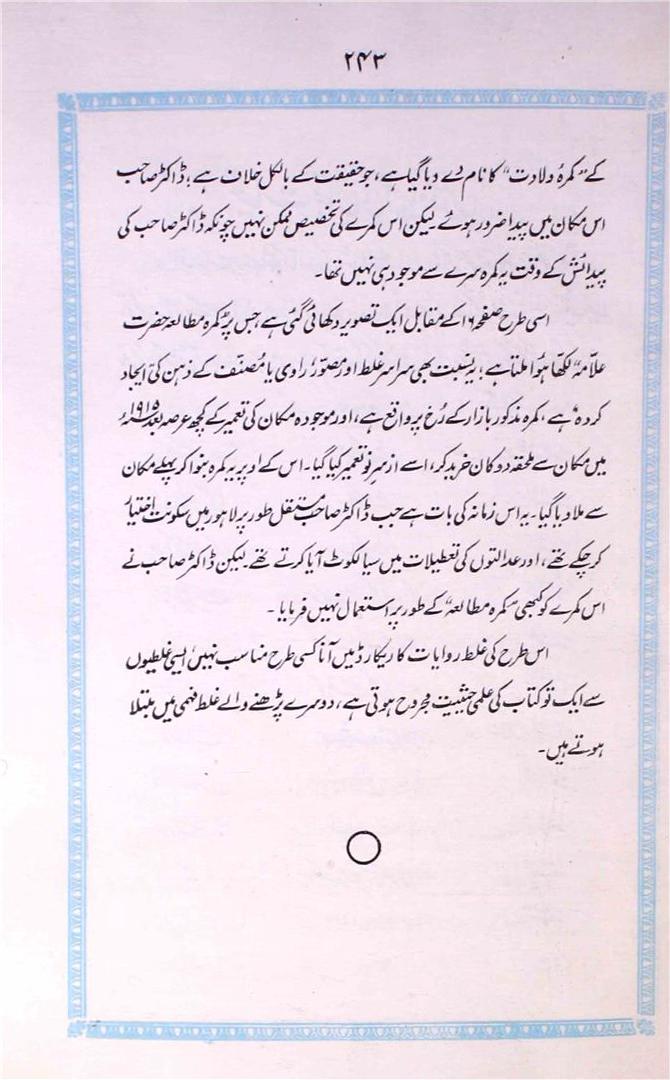 ۲۴۳
کے "کمرۂ ولادت" کا نام دے دیا گیا ہے، جو حقیقت کے بالکل خلاف ہے؛ ڈاکٹر صاحب
اس مکان میں پیدا ضرور ہوئے لیکن اس کمرے کی تخصیص ممکن نہیں چونکہ ڈاکٹر صاحب کی
پیدائش کے وقت یہ کمرہ سرے سے موجود ہی نہیں تھا۔
اسی طرح صفحہ ۱۶ کے مقابل ایک تصویر دکھائی گئی ہے جس پر "کمرہ مطالعہ حضرت
علّامہ" لکھا ہوا ملتا ہے؛ یہ نسبت بھی سراسر غلط اور مصوّر، راوی یا مُصنّف کے ذہن کی ایجاد
کردہ ہے، کمرہ مذکور بازار کے رُخ پر واقع ہے، اور موجودہ مکان کی تعمیر کے کچھ عرصہ بعد ۱۹۱۵ء
میں مکان سے ملحقہ دوکان خرید کر، اسے از سرِ نو تعمیر کیا گیا۔ اس کے اوپر یہ کمرہ بنوا کر پہلے مکان
سے ملا دیا گیا۔ یہ اس زمانہ کی بات ہے جب ڈاکٹر صاحب مستقل طور پر لاہور میں سکونت اختیار
کر چکے تھے، اور عدالتوں کی تعطیلات میں سیالکوٹ آیا کرتے تھے لیکن ڈاکٹر صاحب نے
اس کمرے کو کبھی "کمرہ مطالعہ" کے طور پر استعمال نہیں فرمایا۔
اس طرح کی غلط روایات کا ریکارڈ میں آنا کسی طرح مناسب نہیں، ایسی غلطیوں
سے ایک تو کتاب کی علمی حیثیت مجروح ہوتی ہے، دوسرے پڑھنے والے غلط فہمی میں مبتلا
ہوتے ہیں۔